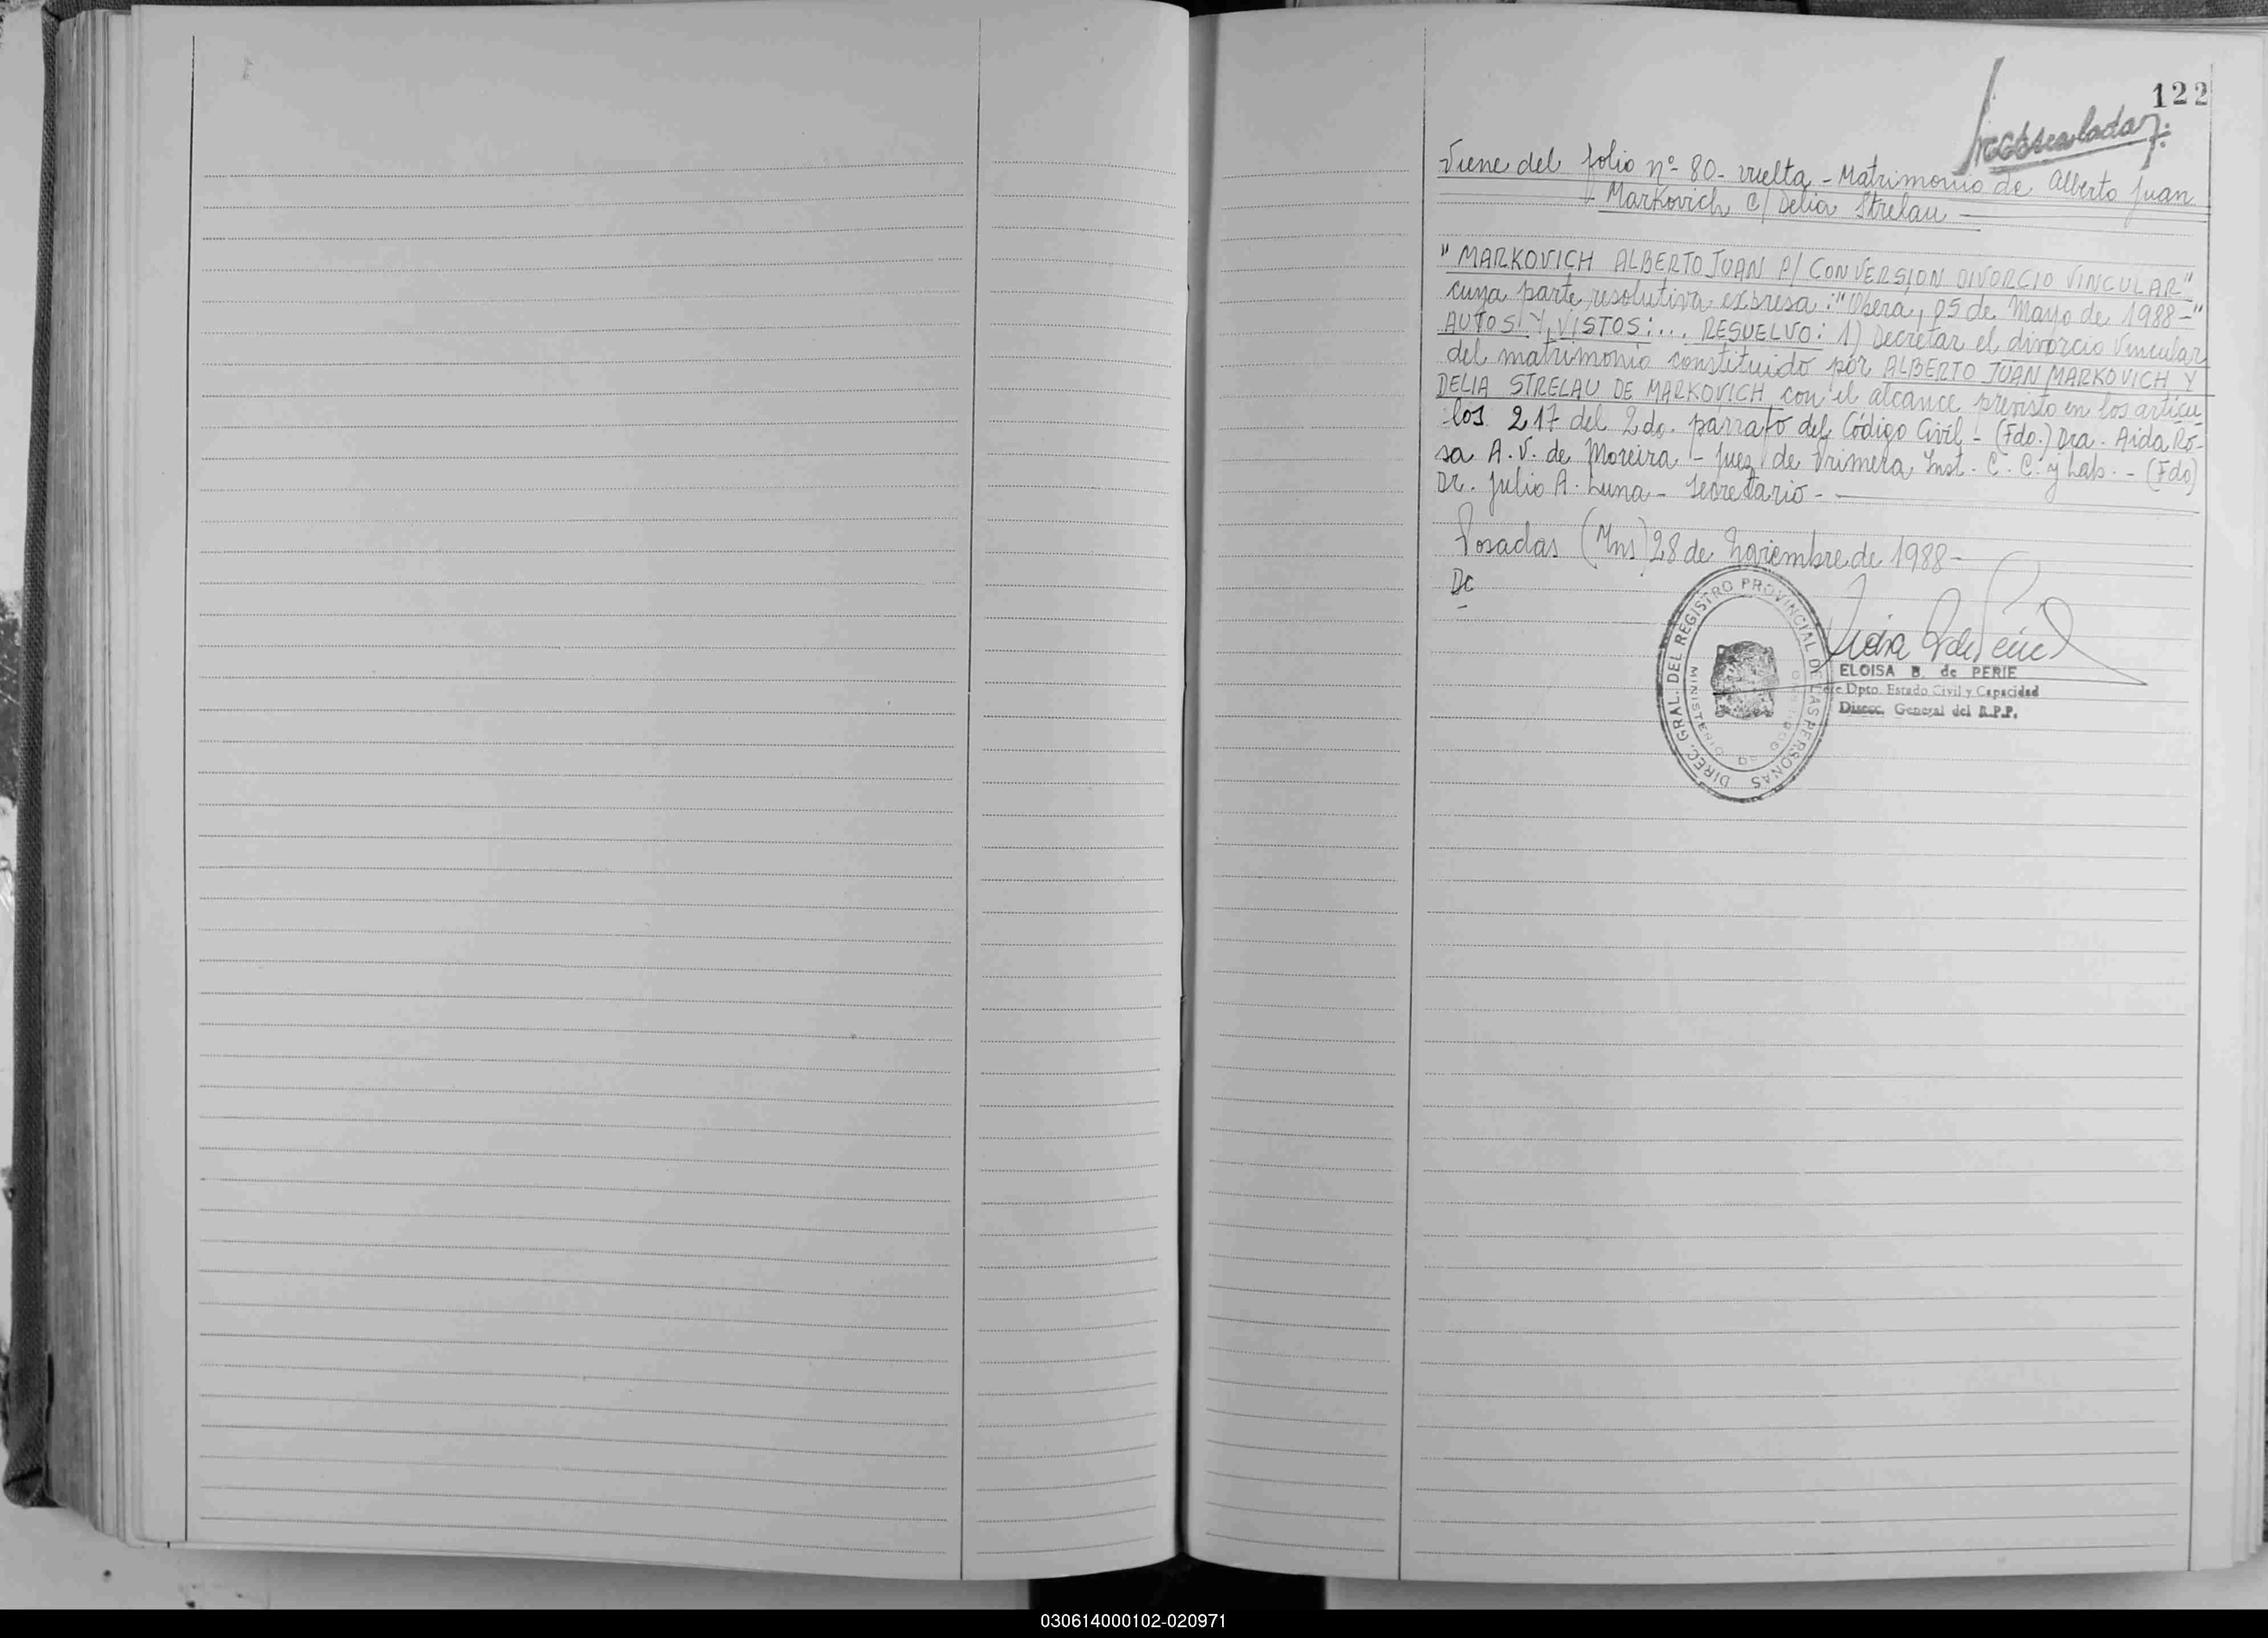 122
Viene del folio nº 80- vuelta - Matrimonio de Alberto Juan
Markovich c/ Delia Strelau
"MARKOVICH ALBERTO JUAN P/ CONVERSION DIVORCIO VINCULAR"
cuya parte resolutiva expresa: "Obera, 05 de Mayo de 1988-"
AUTOS Y VISTOS:... RESUELVO: 1) Decretar el divorcio vincular
del matrimonio constituido por ALBERTO JUAN MARKOVICH Y
DELIA STRELAU DE MARKOVICH con el alcance previsto en los articu-
los 217 del 2do. párrafo del Código Civil - (Fdo.) Dra. Aida Ro-
sa A. V. de Moreira - Juez de Primera Inst. C. C. y Lab. - (Fdo)
Dr. Julio A. Luna - Secretario -
Posadas (Mns) 28 de Noviembre de 1988-
Dc
DIREC. GRAL. DEL REGISTRO PROVINCIAL DE LAS PERSONAS
MINISTERIO DE GOBIERNO
ELOISA B. de PERIE
Jefe Dpto. Estado Civil y Capacidad
Direcc. General del R.P.P.
030614000102-020971